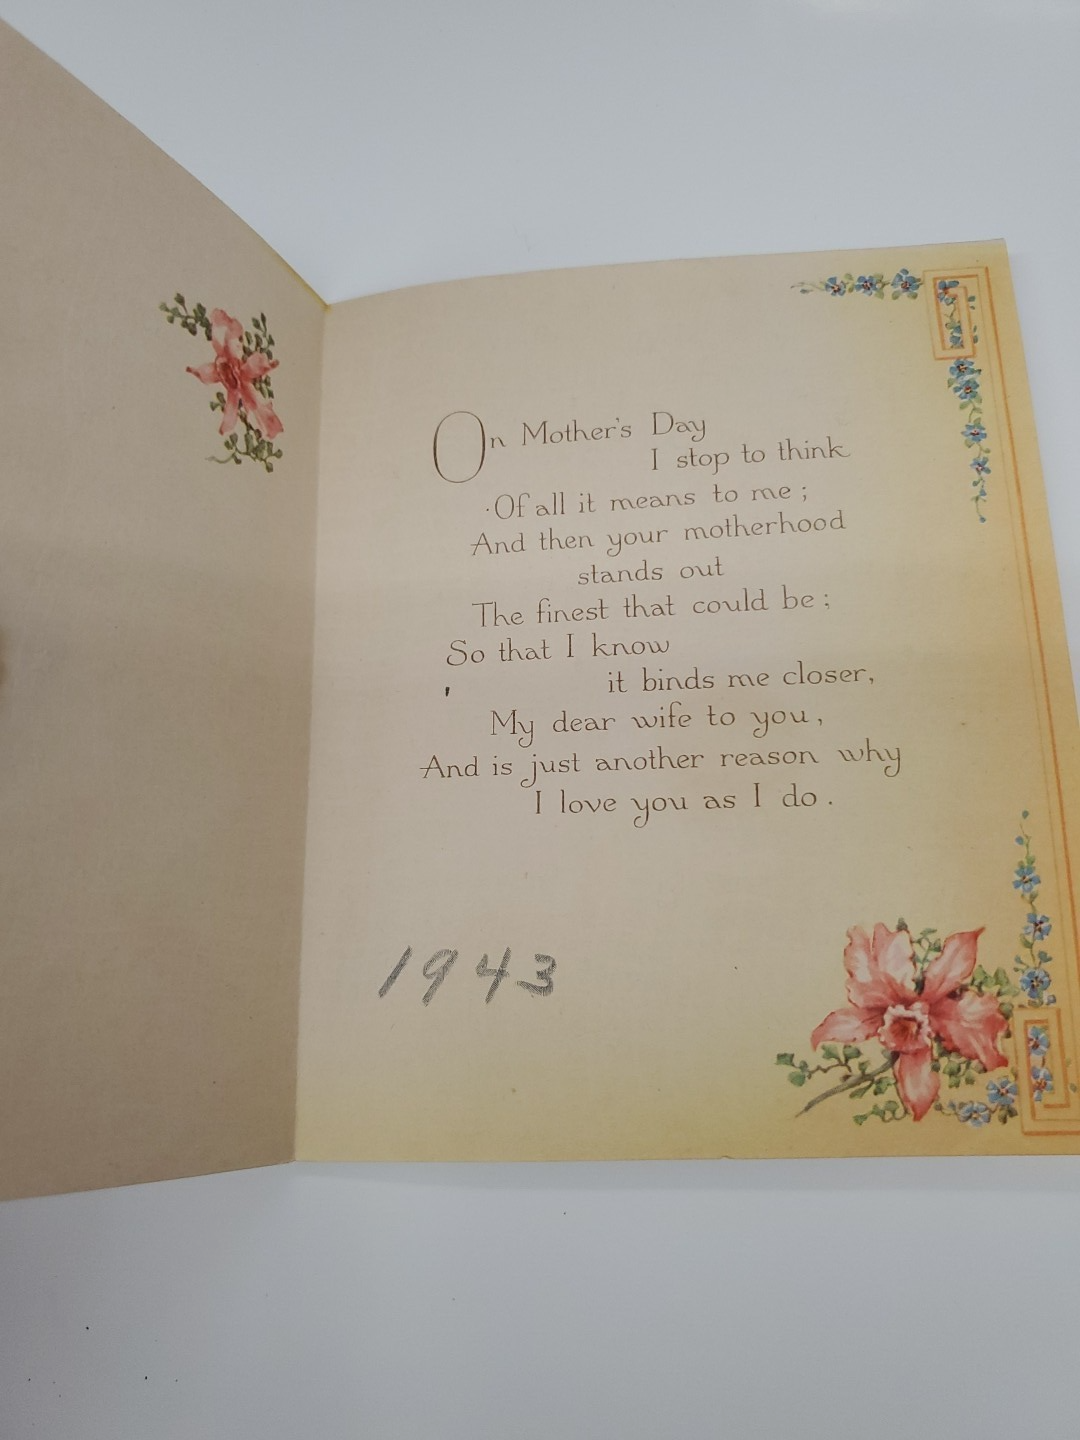 On Mother's Day
I stop to think
Of all it means to me;
And then your motherhood
stands out
The finest that could be;
So that I know
it binds me closer,
My dear wife to you,
And is just another reason why
I love you as I do.
1943